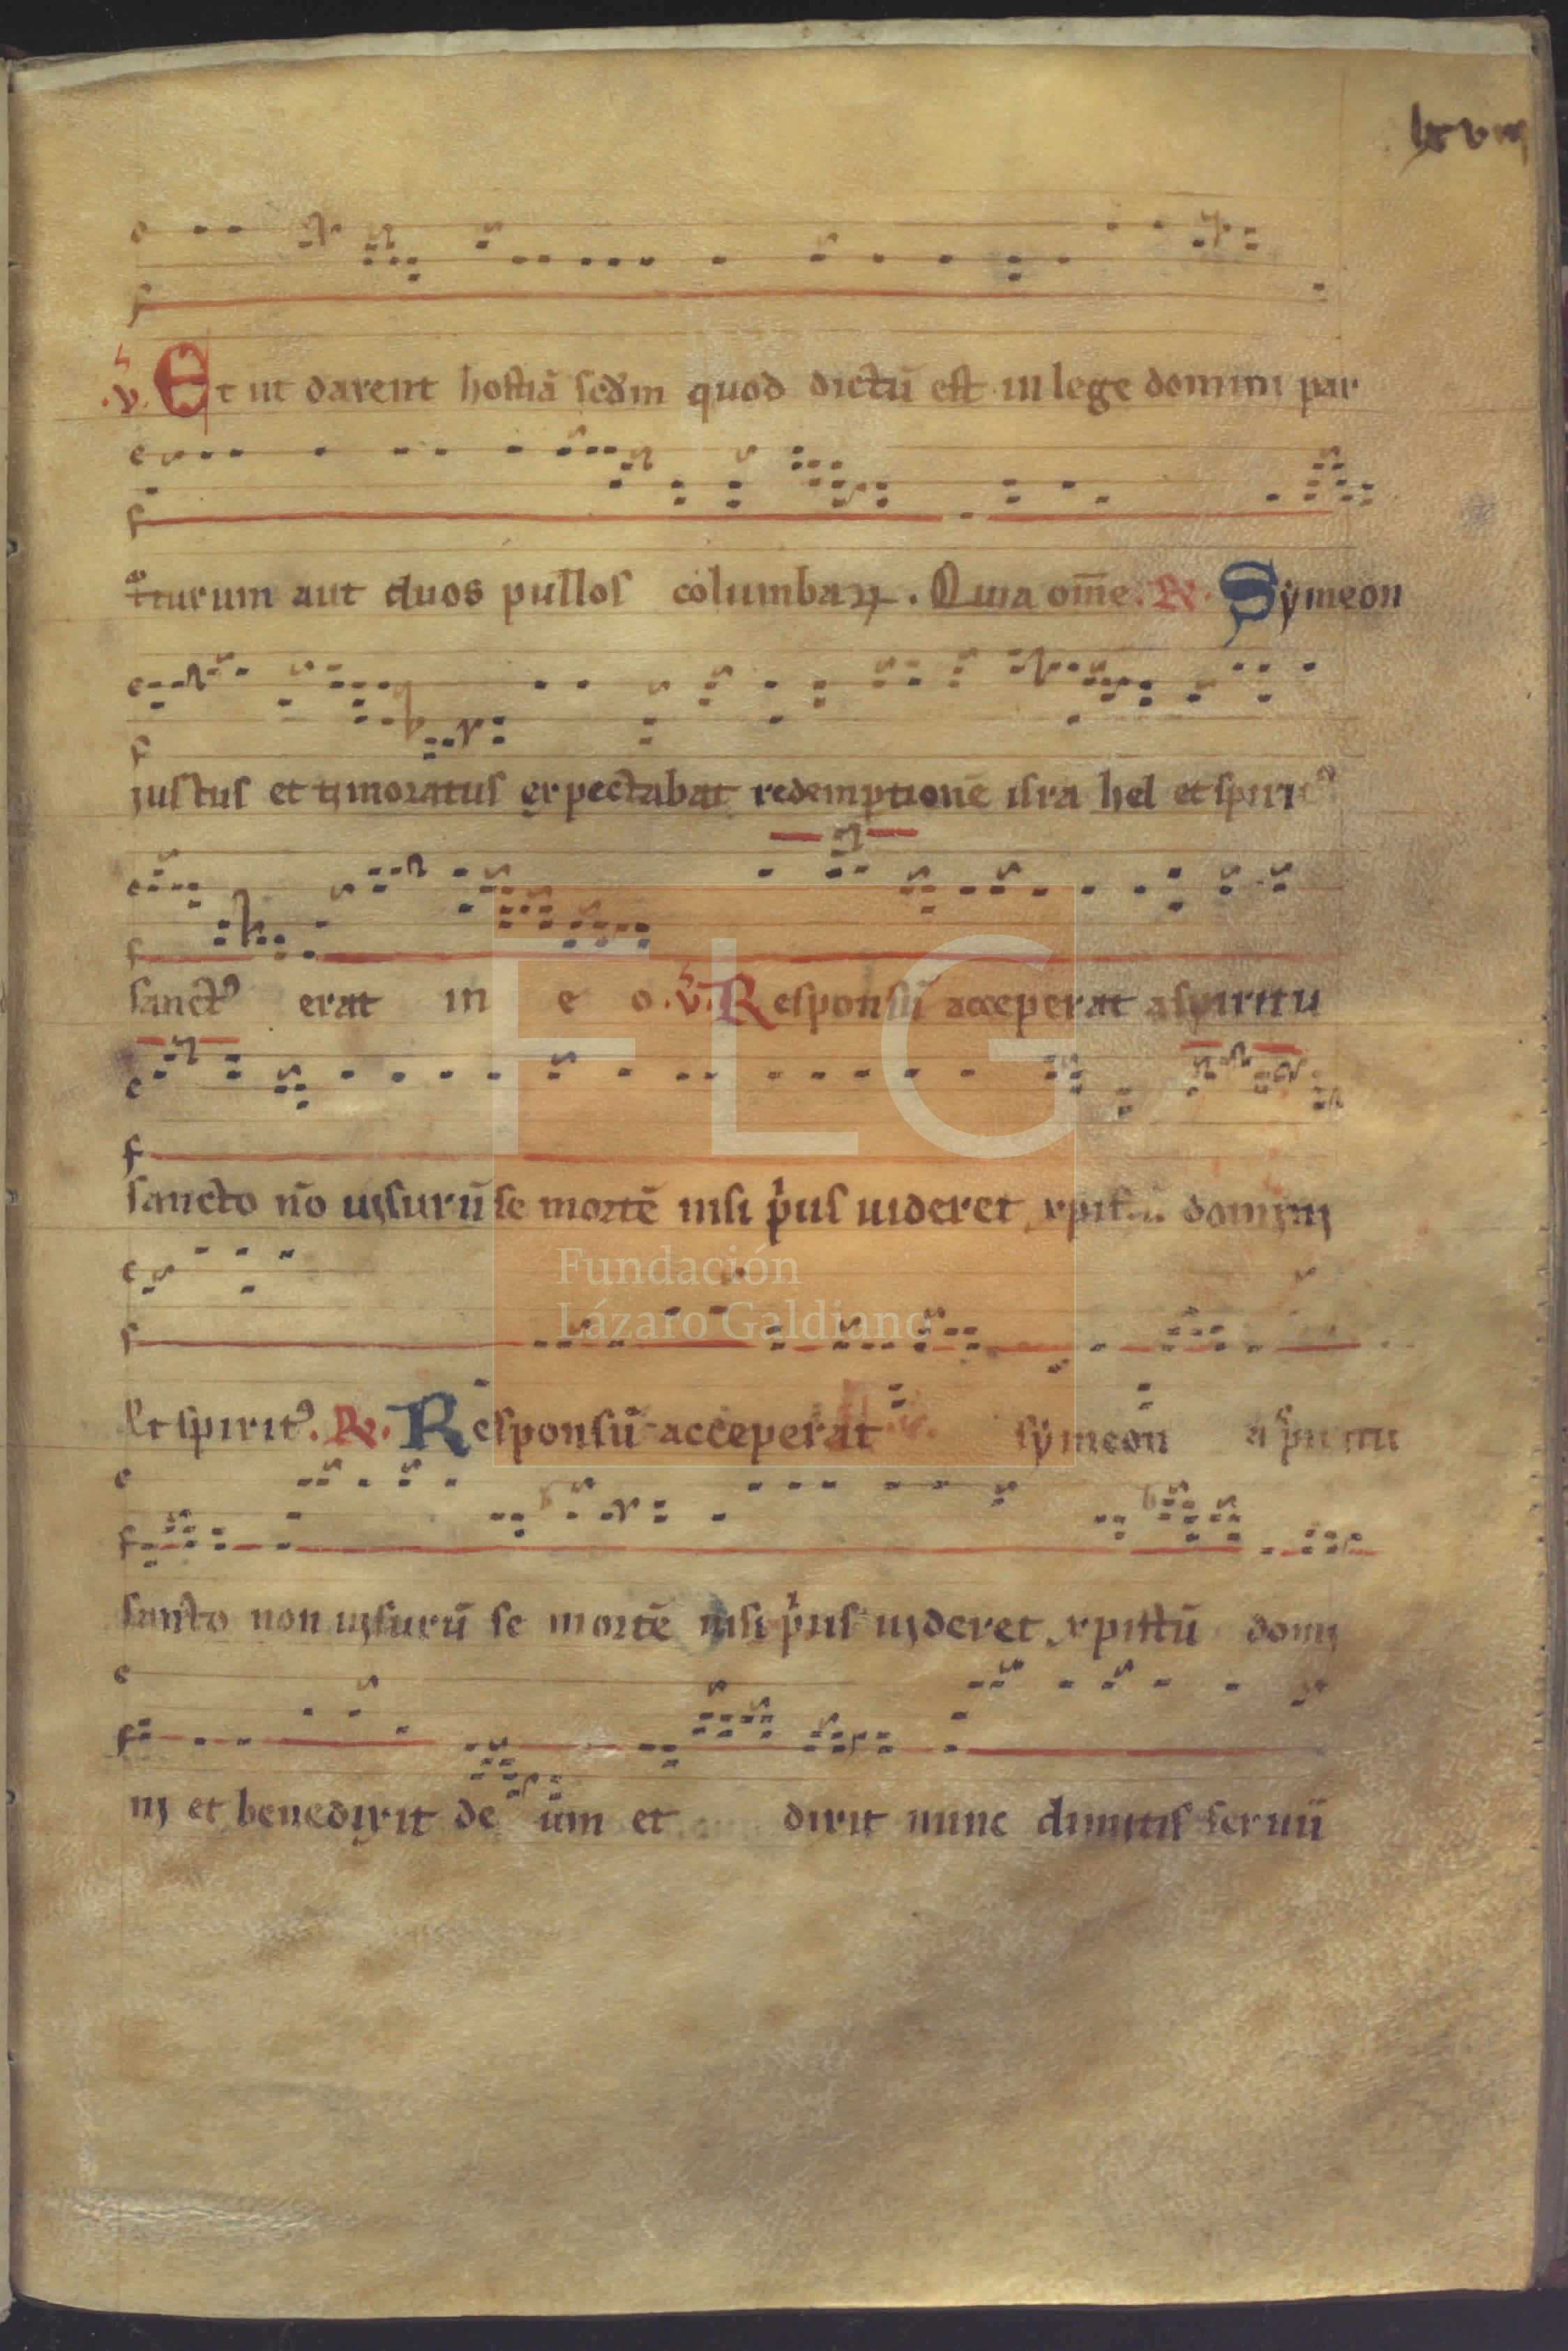 lxviij
.v. Et ut darent hostiā scdm quod dictū est in lege domini par
turum aut duos pullos columbaꝝ. Quia om̄e. R. Sẏmeon
justus et tjmoratus expectabat redemptionē isra hel et spiritꝰ
sanctꝰ erat in e o. v. Responsū acceperat a spiritu
sancto nō ujsurū se mortē nisi pius uideret domjnj
Et spiritꝰ. R. Responsū acceperat sẏmeon a
sancto non ujsurū se mortē nisi pius ujderet xpistū domj
nj et benedixit de um et dixit nunc dimitis seruū
FLG
Fundación
Lázaro Galdiano